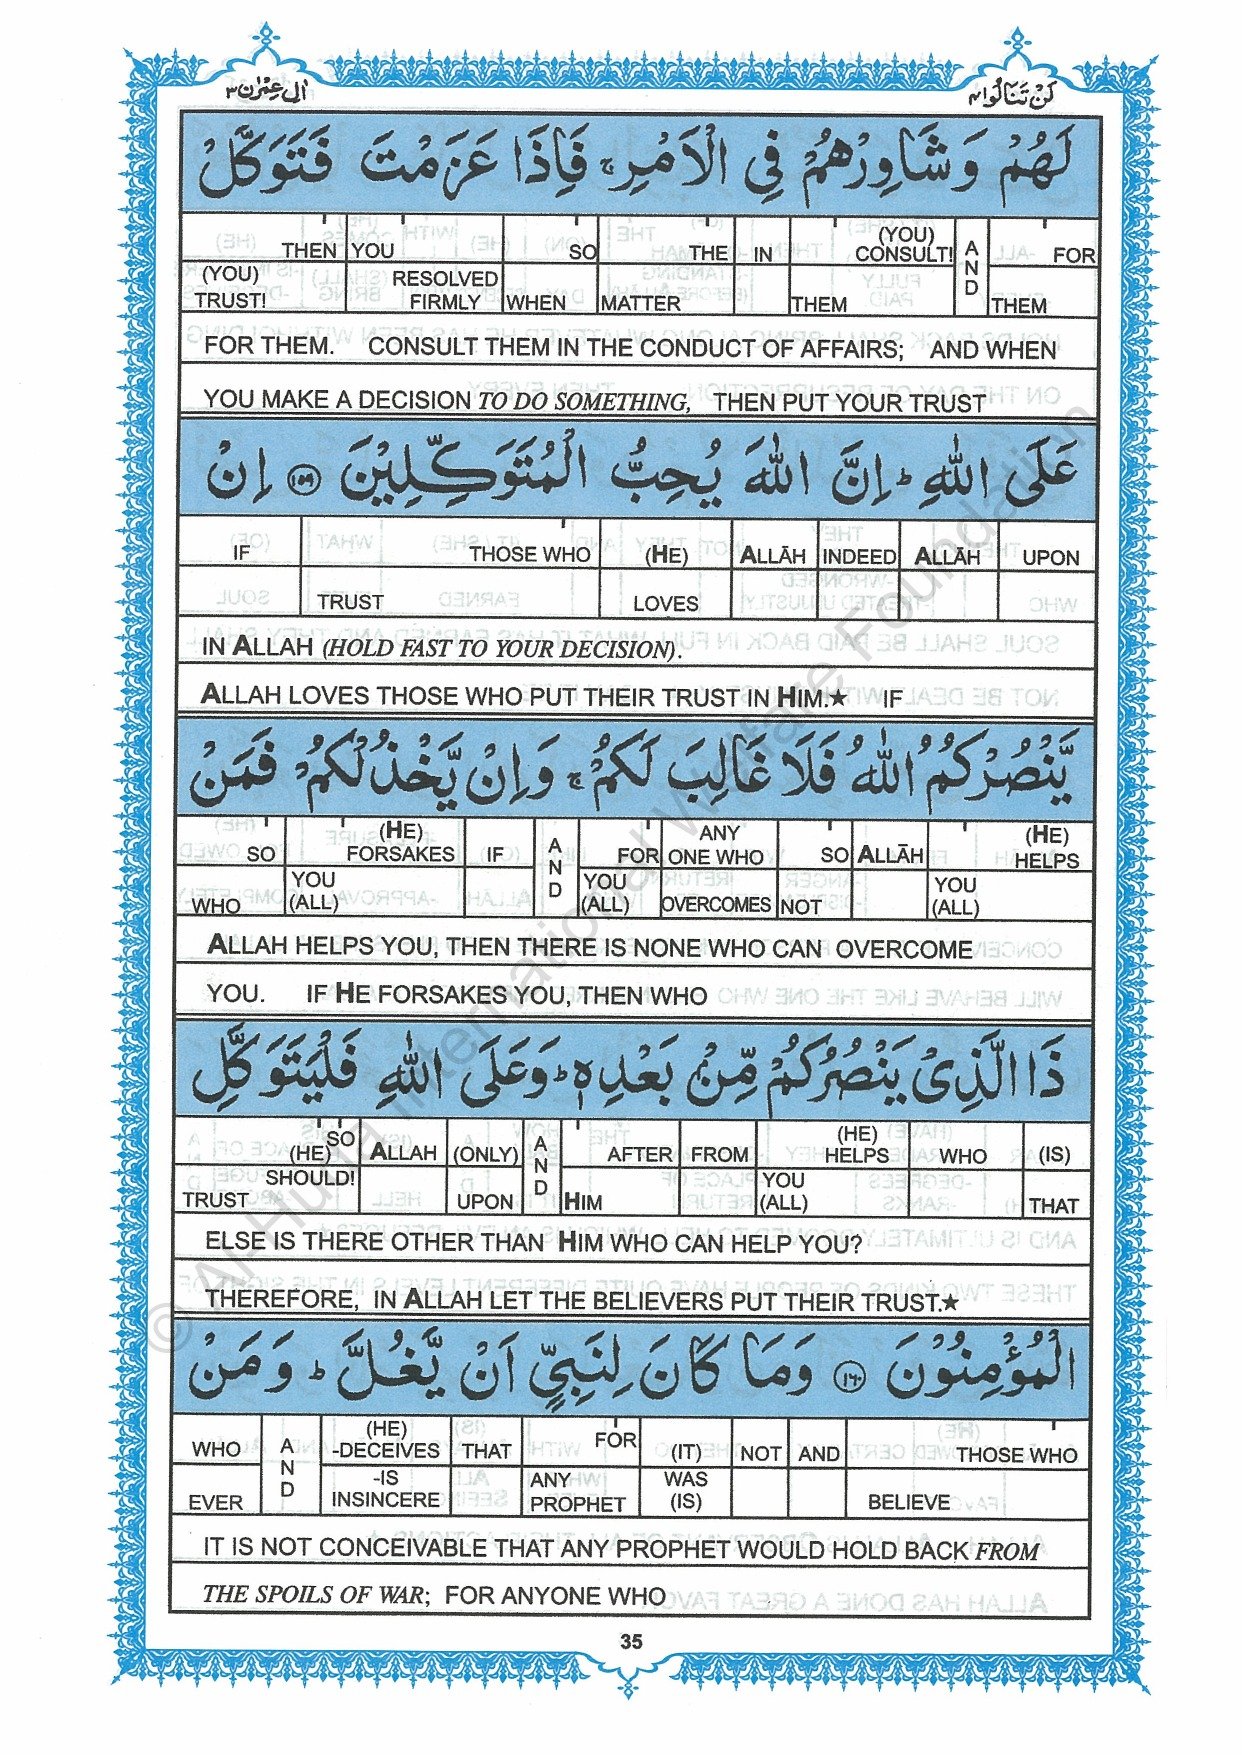 اٰل عِمْرٰن ٣
لَنْ تَنَالُوا ٤
لَهُمْ وَشَاوِرْهُمْ فِي الْاَمْرِ ۚ فَاِذَا عَزَمْتَ فَتَوَكَّلْ
THEN YOU SO THE IN (YOU) CONSULT! AND FOR
(YOU) TRUST! RESOLVED FIRMLY WHEN MATTER THEM THEM
FOR THEM. CONSULT THEM IN THE CONDUCT OF AFFAIRS; AND WHEN
YOU MAKE A DECISION TO DO SOMETHING, THEN PUT YOUR TRUST
عَلَى اللّٰهِ ؕ اِنَّ اللّٰهَ يُحِبُّ الْمُتَوَكِّلِيْنَ ١٥٩ اِنْ
IF THOSE WHO (HE) ALLĀH INDEED ALLĀH UPON
TRUST LOVES
IN ALLAH (HOLD FAST TO YOUR DECISION).
ALLAH LOVES THOSE WHO PUT THEIR TRUST IN HIM.★ IF
يَّنْصُرْكُمُ اللّٰهُ فَلَا غَالِبَ لَكُمْ ۚ وَاِنْ يَّخْذُلْكُمْ فَمَنْ
SO (HE) FORSAKES IF AND FOR ANY ONE WHO SO ALLĀH (HE) HELPS
WHO YOU (ALL) YOU (ALL) OVERCOMES NOT YOU (ALL)
ALLAH HELPS YOU, THEN THERE IS NONE WHO CAN OVERCOME
YOU. IF HE FORSAKES YOU, THEN WHO
ذَا الَّذِيْ يَنْصُرُكُمْ مِّنْۢ بَعْدِهٖ ؕ وَعَلَى اللّٰهِ فَلْيَتَوَكَّلِ
SO (HE) ALLAH (ONLY) AND AFTER FROM (HE) HELPS WHO (IS)
TRUST SHOULD! UPON HIM YOU (ALL) THAT
ELSE IS THERE OTHER THAN HIM WHO CAN HELP YOU?
THEREFORE, IN ALLAH LET THE BELIEVERS PUT THEIR TRUST.★
الْمُؤْمِنُوْنَ ١٦٠ وَمَا كَانَ لِنَبِيٍّ اَنْ يَّغُلَّ ؕ وَمَنْ
WHO AND (HE) -DECEIVES THAT FOR (IT) NOT AND THOSE WHO
EVER -IS INSINCERE ANY PROPHET WAS (IS) BELIEVE
IT IS NOT CONCEIVABLE THAT ANY PROPHET WOULD HOLD BACK FROM
THE SPOILS OF WAR; FOR ANYONE WHO
35
© Al-Huda International Welfare Foundation